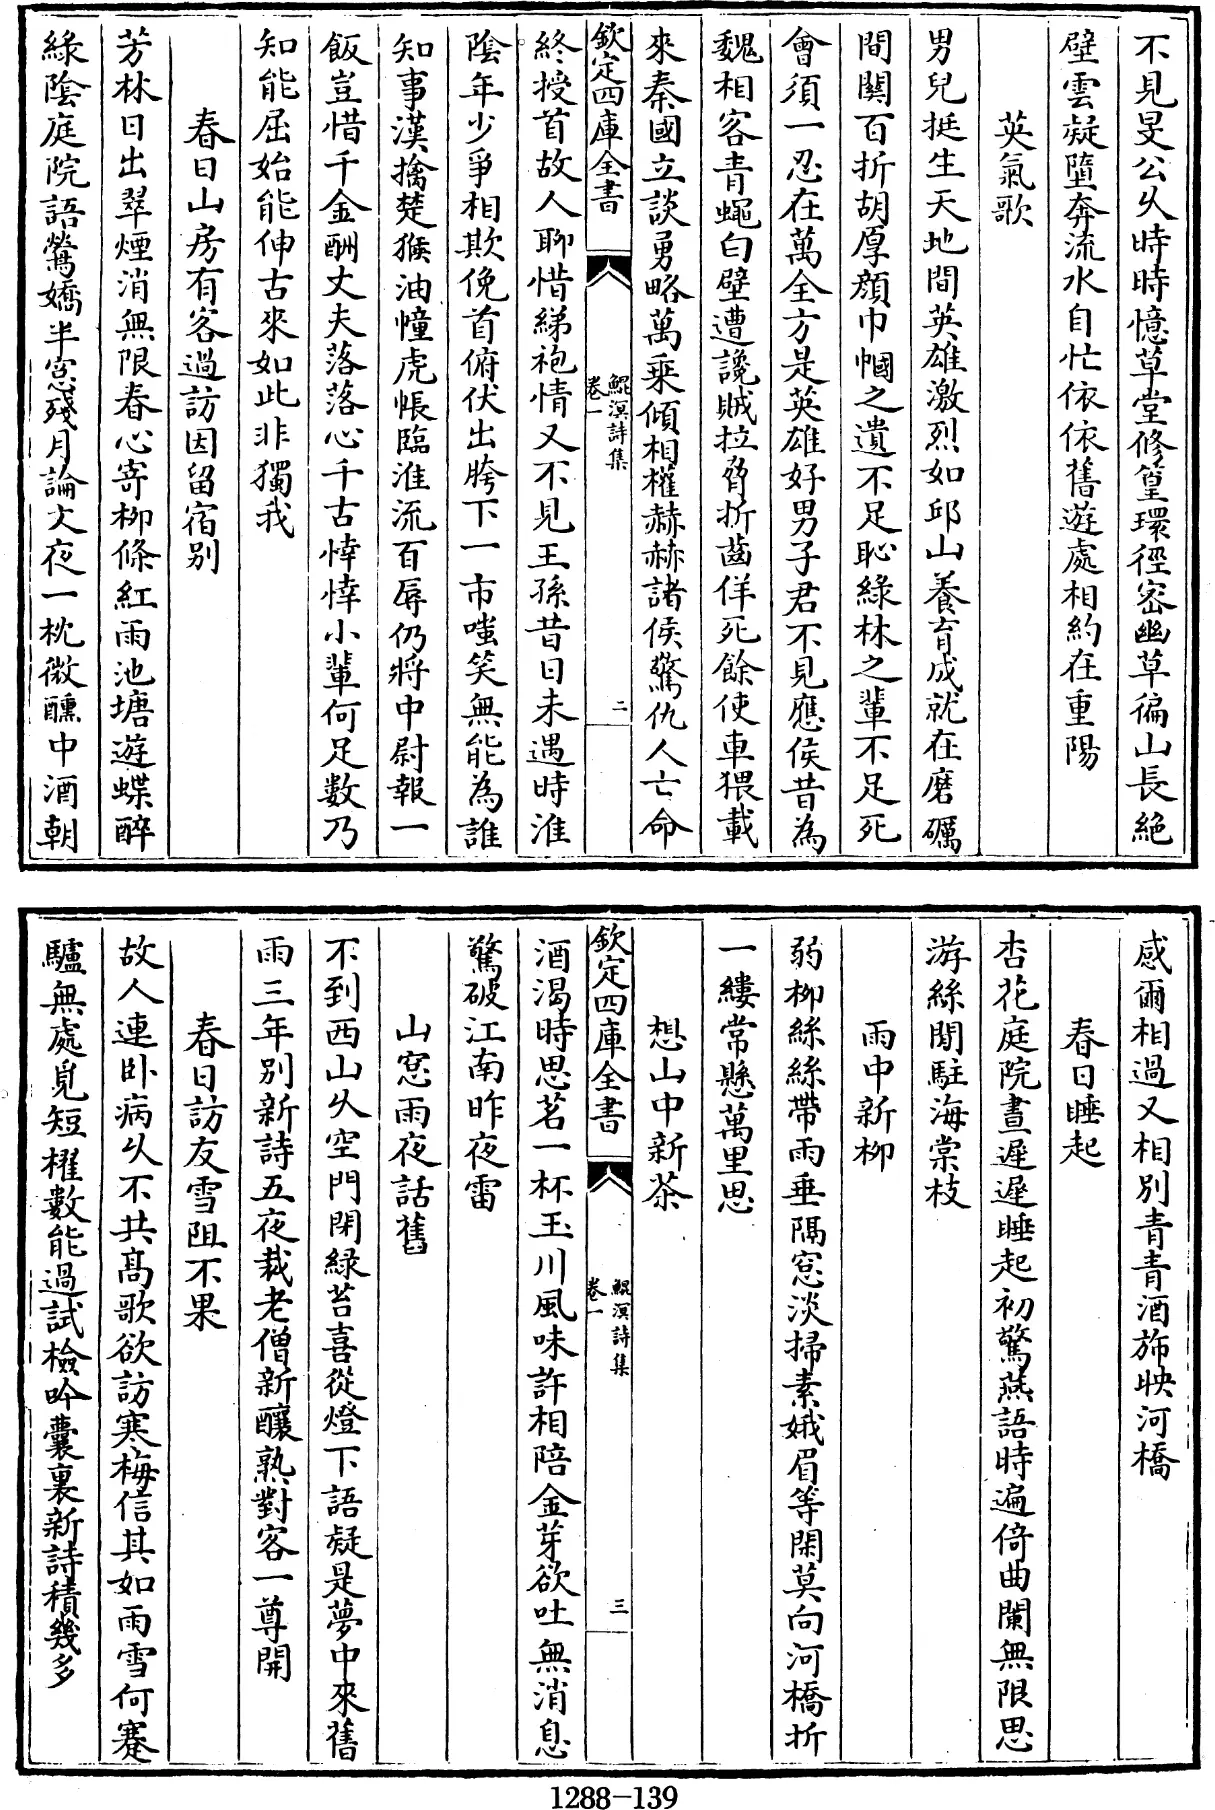 不見旻公乆時時憶草堂修篁環徑密幽草徧山長絶
壁雲凝墮奔流水自忙依依舊遊處相約在重陽
英氣歌
男兒挺生天地間英雄激烈如邱山養育成就在磨礪
間關百折胡厚顔巾幗之遺不足恥綠林之輩不足死
會須一忍在萬全方是英雄好男子君不見應侯昔為
魏相客青蠅白壁遭讒賊拉脅折齒佯死餘使車猥載
來秦國立談勇略萬乗傾相權赫赫諸侯驚仇人亡命
欽定四庫全書
鯤溟詩集
卷一
二
終授首故人聊惜綈袍情又不見王孫昔日未遇時淮
陰年少爭相欺俛首俯伏出胯下一市嗤笑無能為誰
知事漢擒楚猴油幢虎帳臨淮流百辱仍將中尉報一
飯豈惜千金酬丈夫落落心千古悻悻小輩何足數乃
知能屈始能伸古來如此非獨我
春日山房有客過訪因留宿别
芳林日出翠煙消無限春心寄柳條紅雨池塘遊蝶醉
綠陰庭院語鶯嬌半窓殘月論文夜一枕微醺中酒朝
感爾相過又相别青青酒斾映河橋
春日睡起
杏花庭院晝遲遲睡起初驚燕語時遍倚曲闌無限思
游絲閒駐海棠枝
雨中新柳
弱柳絲絲帶雨垂隔窓淡掃素娥眉等閑莫向河橋折
一縷常懸萬里思
想山中新茶
欽定四庫全書
鯤溟詩集
卷一
三
酒渴時思茗一杯玉川風味許相陪金芽欲吐無消息
驚破江南昨夜雷
山窓雨夜話舊
不到西山乆空門閉緑苔喜從燈下語疑是夢中來舊
雨三年别新詩五夜裁老僧新釀熟對客一尊開
春日訪友雪阻不果
故人連卧病乆不共髙歌欲訪寒梅信其如雨雪何蹇
驢無處覓短櫂數能過試檢吟囊裏新詩積幾多
1288-139